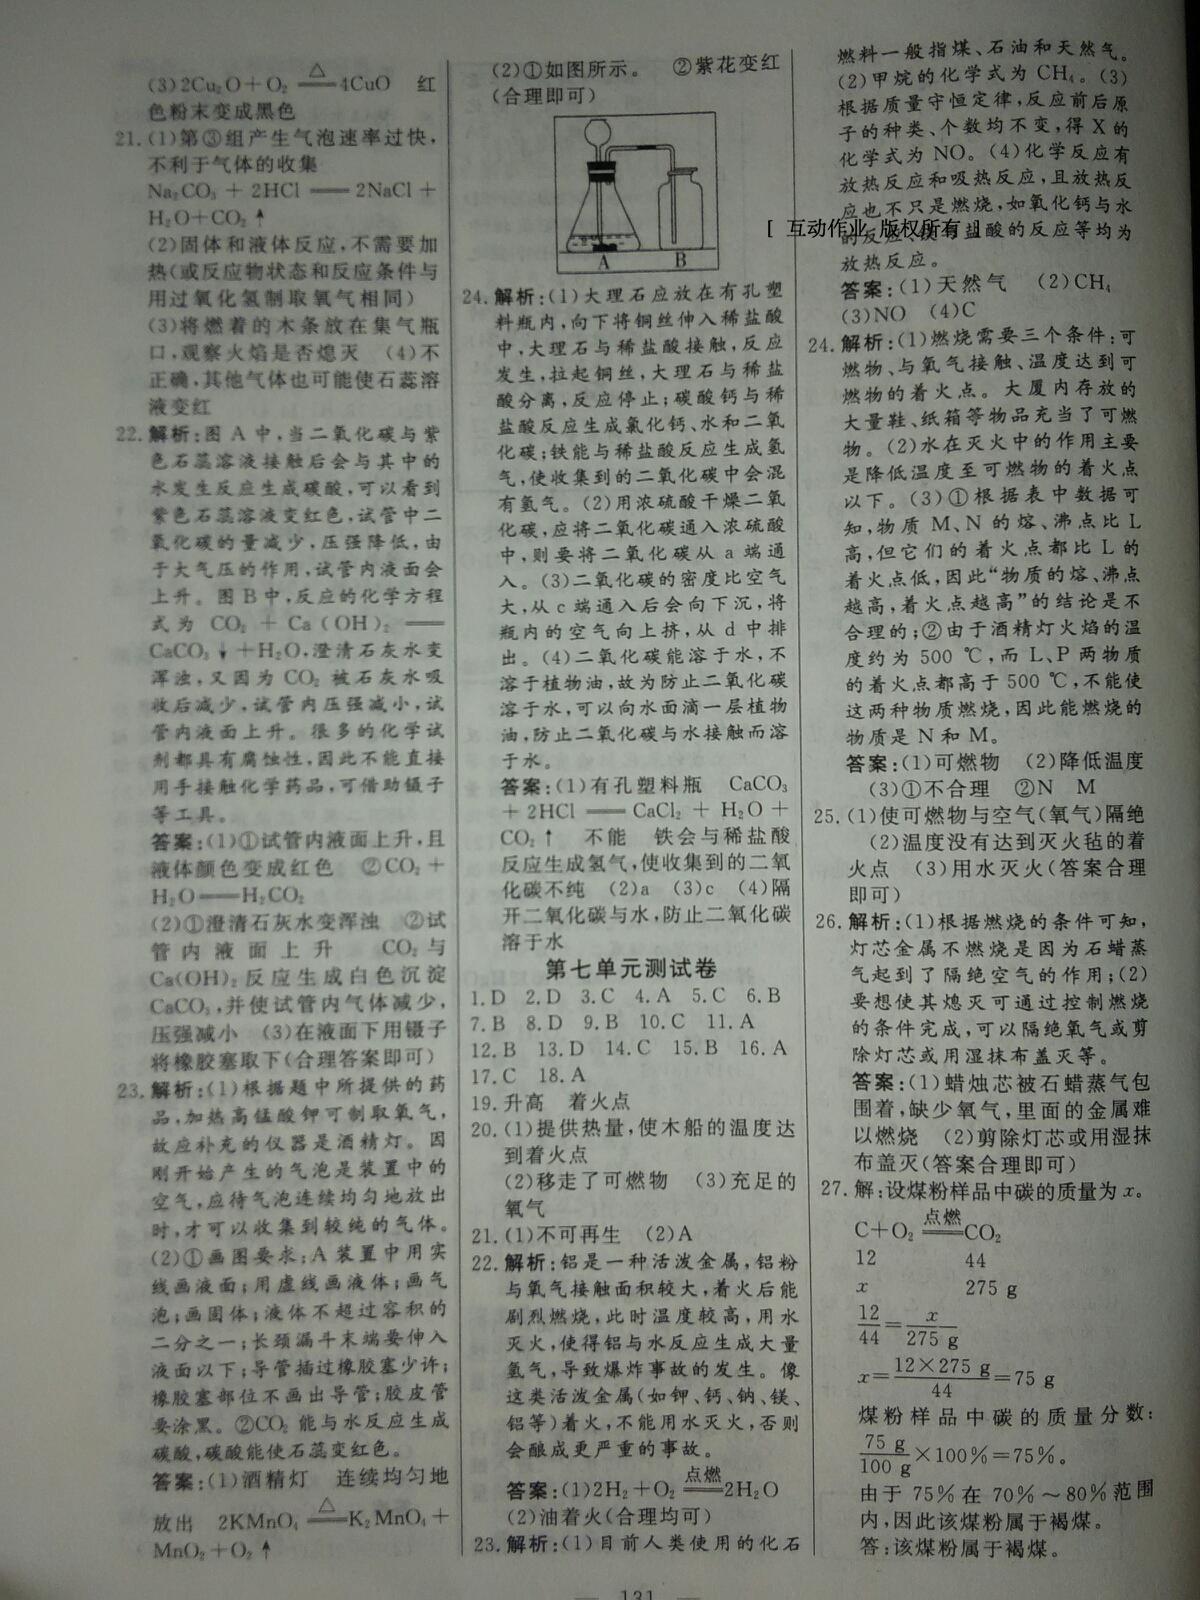 (3)2Cu₂O＋O₂ △══4CuO 红
色粉末变成黑色
21.(1)第③组产生气泡速率过快,
不利于气体的收集
Na₂CO₃ ＋ 2HCl ══ 2NaCl ＋
H₂O＋CO₂↑
(2)固体和液体反应,不需要加
热(或反应物状态和反应条件与
用过氧化氢制取氧气相同)
(3)将燃着的木条放在集气瓶
口,观察火焰是否熄灭 (4)不
正确,其他气体也可能使石蕊溶
液变红
22.解析:图 A 中,当二氧化碳与紫
色石蕊溶液接触后会与其中的
水发生反应生成碳酸,可以看到
紫色石蕊溶液变红色,试管中二
氧化碳的量减少,压强降低,由
于大气压的作用,试管内液面会
上升。图 B 中,反应的化学方程
式为 CO₂ ＋ Ca(OH)₂ ══
CaCO₃↓＋H₂O,澄清石灰水变
浑浊,又因为 CO₂ 被石灰水吸
收后减少,试管内压强减小,试
管内液面上升。很多的化学试
剂都具有腐蚀性,因此不能直接
用手接触化学药品,可借助镊子
等工具。
答案:(1)①试管内液面上升,且
液体颜色变成红色 ②CO₂＋
H₂O══H₂CO₃
(2)①澄清石灰水变浑浊 ②试
管内液面上升 CO₂与
Ca(OH)₂反应生成白色沉淀
CaCO₃,并使试管内气体减少,
压强减小 (3)在液面下用镊子
将橡胶塞取下(合理答案即可)
23.解析:(1)根据题中所提供的药
品,加热高锰酸钾可制取氧气,
故应补充的仪器是酒精灯。因
刚开始产生的气泡是装置中的
空气,应待气泡连续均匀地放出
时,才可以收集到较纯的气体。
(2)①画图要求:A 装置中用实
线画液面;用虚线画液体;画气
泡;画固体;液体不超过容积的
二分之一;长颈漏斗末端要伸入
液面以下;导管插过橡胶塞少许;
橡胶塞部位不画出导管;胶皮管
要涂黑。②CO₂ 能与水反应生成
碳酸,碳酸能使石蕊变红色。
答案:(1)酒精灯 连续均匀地
放出 2KMnO₄ △══K₂MnO₄＋
MnO₂＋O₂↑
(2)①如图所示。 ②紫花变红
(合理即可)
A B
24.解析:(1)大理石应放在有孔塑
料瓶内,向下将铜丝伸入稀盐酸
中,大理石与稀盐酸接触,反应
发生,拉起铜丝,大理石与稀盐
酸分离,反应停止;碳酸钙与稀
盐酸反应生成氯化钙、水和二氧
化碳;铁能与稀盐酸反应生成氢
气,使收集到的二氧化碳中会混
有氢气。(2)用浓硫酸干燥二氧
化碳,应将二氧化碳通入浓硫酸
中,则要将二氧化碳从 a 端通
入。(3)二氧化碳的密度比空气
大,从 c 端通入后会向下沉,将
瓶内的空气向上挤,从 d 中排
出。(4)二氧化碳能溶于水,不
溶于植物油,故为防止二氧化碳
溶于水,可以向水面滴一层植物
油,防止二氧化碳与水接触而溶
于水。
答案:(1)有孔塑料瓶 CaCO₃
＋ 2HCl ══ CaCl₂ ＋ H₂O ＋
CO₂↑ 不能 铁会与稀盐酸
反应生成氢气,使收集到的二氧
化碳不纯 (2)a (3)c (4)隔
开二氧化碳与水,防止二氧化碳
溶于水
第七单元测试卷
1.D 2.D 3.C 4.A 5.C 6.B
7.B 8.D 9.B 10.C 11.A
12.B 13.D 14.C 15.B 16.A
17.C 18.A
19.升高 着火点
20.(1)提供热量,使木船的温度达
到着火点
(2)移走了可燃物 (3)充足的
氧气
21.(1)不可再生 (2)A
22.解析:铝是一种活泼金属,铝粉
与氧气接触面积较大,着火后能
剧烈燃烧,此时温度较高,用水
灭火,使得铝与水反应生成大量
氢气,导致爆炸事故的发生。像
这类活泼金属(如钾、钙、钠、镁、
铝等)着火,不能用水灭火,否则
会酿成更严重的事故。
答案:(1)2H₂＋O₂ 点燃══2H₂O
(2)油着火(合理均可)
23.解析:(1)目前人类使用的化石
燃料一般指煤、石油和天然气。
(2)甲烷的化学式为 CH₄。(3)
根据质量守恒定律,反应前后原
子的种类、个数均不变,得 X 的
化学式为 NO。(4)化学反应有
放热反应和吸热反应,且放热反
应也不只是燃烧,如氧化钙与水
[ 互动作业 版权所有 ]
的反应、盐酸的反应等均为
放热反应。
答案:(1)天然气 (2)CH₄
(3)NO (4)C
24.解析:(1)燃烧需要三个条件:可
燃物、与氧气接触、温度达到可
燃物的着火点。大厦内存放的
大量鞋、纸箱等物品充当了可燃
物。(2)水在灭火中的作用主要
是降低温度至可燃物的着火点
以下。(3)①根据表中数据可
知,物质 M、N 的熔、沸点比 L
高,但它们的着火点都比 L 的
着火点低,因此“物质的熔、沸点
越高,着火点越高”的结论是不
合理的;②由于酒精灯火焰的温
度约为 500 ℃,而 L、P 两物质
的着火点都高于 500 ℃,不能使
这两种物质燃烧,因此能燃烧的
物质是 N 和 M。
答案:(1)可燃物 (2)降低温度
(3)①不合理 ②N M
25.(1)使可燃物与空气(氧气)隔绝
(2)温度没有达到灭火毯的着
火点 (3)用水灭火(答案合理
即可)
26.解析:(1)根据燃烧的条件可知,
灯芯金属不燃烧是因为石蜡蒸
气起到了隔绝空气的作用;(2)
要想使其熄灭可通过控制燃烧
的条件完成,可以隔绝氧气或剪
除灯芯或用湿抹布盖灭等。
答案:(1)蜡烛芯被石蜡蒸气包
围着,缺少氧气,里面的金属难
以燃烧 (2)剪除灯芯或用湿抹
布盖灭(答案合理即可)
27.解:设煤粉样品中碳的质量为 x。
C＋O₂ 点燃══CO₂
12 44
x 275 g
12/44＝x/275 g
x＝12×275 g/44＝75 g
煤粉样品中碳的质量分数:
75 g/100 g×100%＝75%。
由于 75%在 70%～80%范围
内,因此该煤粉属于褐煤。
答:该煤粉属于褐煤。
— 131 —